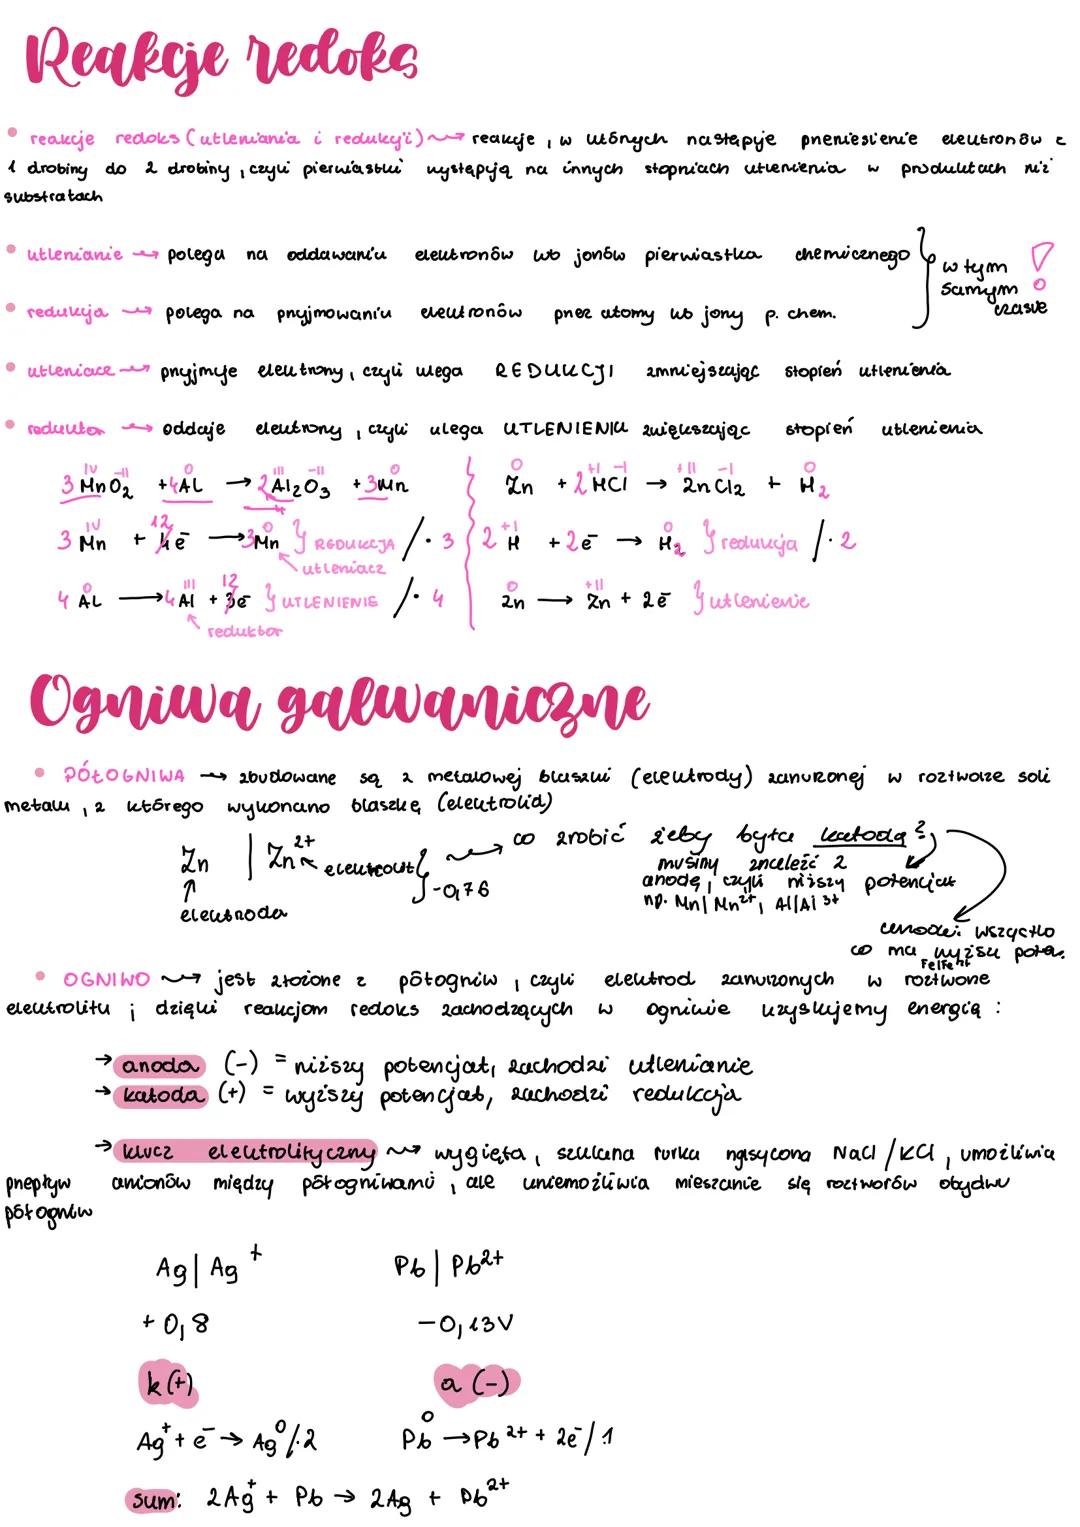 Reakcje redoks
• reakcje redoks (utleniania i redukcji) → reakcje, w których następuje przeniesienie elektronów z
1 drobiny do 2 drobiny, czyli pierwiastki występują na innych stopniach utlenienia w produktach niż
substratach
• utlenianie → polega na oddawaniu elektronów lub jonów pierwiastka chemicznego } w tym samym czasie !
• redukcja → polega na przyjmowaniu elektronów przez atomy lub jony p. chem.
• utleniacz → przyjmuje elektrony, czyli ulega REDUKCJI zmniejszając stopień utlenienia
• reduktor → oddaje elektrony, czyli ulega UTLENIENIU zwiększając stopień utlenienia
3 Mn^IV O2^-II + 4Al^0 → 2Al2^III O3^-II + 3Mn^0
3 Mn^IV + 12 e⁻ → 3Mn^0 } REDUKCJA / · 3
utleniacz
4 Al^0 → 4 Al^III + 12 3e⁻ } UTLENIENIE / · 4
reduktor
Zn^0 + 2H^+I Cl^-I → Zn^+II Cl2^-I + H2^0
2 H^+I + 2e⁻ → H2^0 } redukcja / · 2
Zn^0 → Zn^+II + 2e⁻ } utlenienie
Ogniwa galwaniczne
• PÓŁOGNIWA → zbudowane są z metalowej blaszki (elektrody) zanurzonej w roztworze soli
metalu, z którego wykonano blaszkę (elektrolid)
Zn | Zn²⁺ ← elektrolit } -0,76
↑
elektroda
→ co zrobić żeby była katodą?
musimy znaleźć z
anodę, czyli niższy potencjał
np. Mn|Mn²⁺, Al|Al³⁺
anodą: wszystko
co ma wyższy poten.
Fe|Fe²⁺
• OGNIWO → jest złożone z półogniw, czyli elektrod zanurzonych w roztworze
elektrolitu i dzięki reakcjom redoks zachodzących w ogniwie uzyskujemy energię :
→ anoda (-) = niższy potencjał, zachodzi utlenianie
→ katoda (+) = wyższy potencjał, zachodzi redukcja
→ klucz elektrolityczny → wygięta, szklana rurka nasycona NaCl/KCl, umożliwia
przepływ anionów między półogniwami, ale uniemożliwia mieszanie się roztworów obydwu
półogniw
Ag | Ag⁺ Pb | Pb²⁺
+ 0,8 - 0,13V
k (+) a (-)
Ag⁺ + e⁻ → Ag⁰ /·2 Pb⁰ → Pb²⁺ + 2e⁻ /·1
sum: 2Ag⁺ + Pb → 2Ag + Pb²⁺